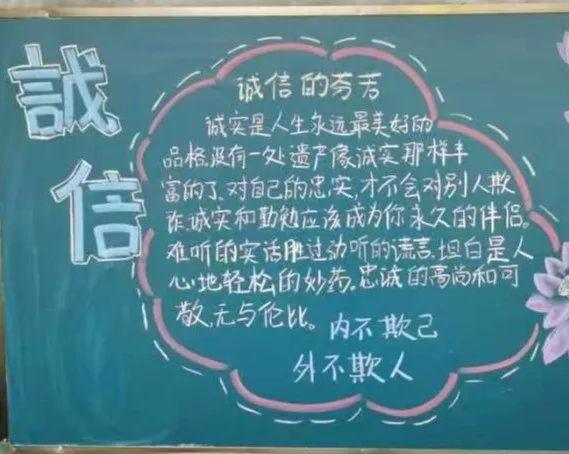 誠信
诚信的芬芳
诚实是人生永远最美好的
品格没有一处遗产像诚实那样丰
富的了。对自己的忠实,才不会对别人欺
诈诚实和勤勉应该成为你永久的伴侣。
难听的实话胜过动听的谎言.坦白是人
心地轻松的妙药.忠诚的高尚和可
敬无与伦比。
内不欺己
外不欺人